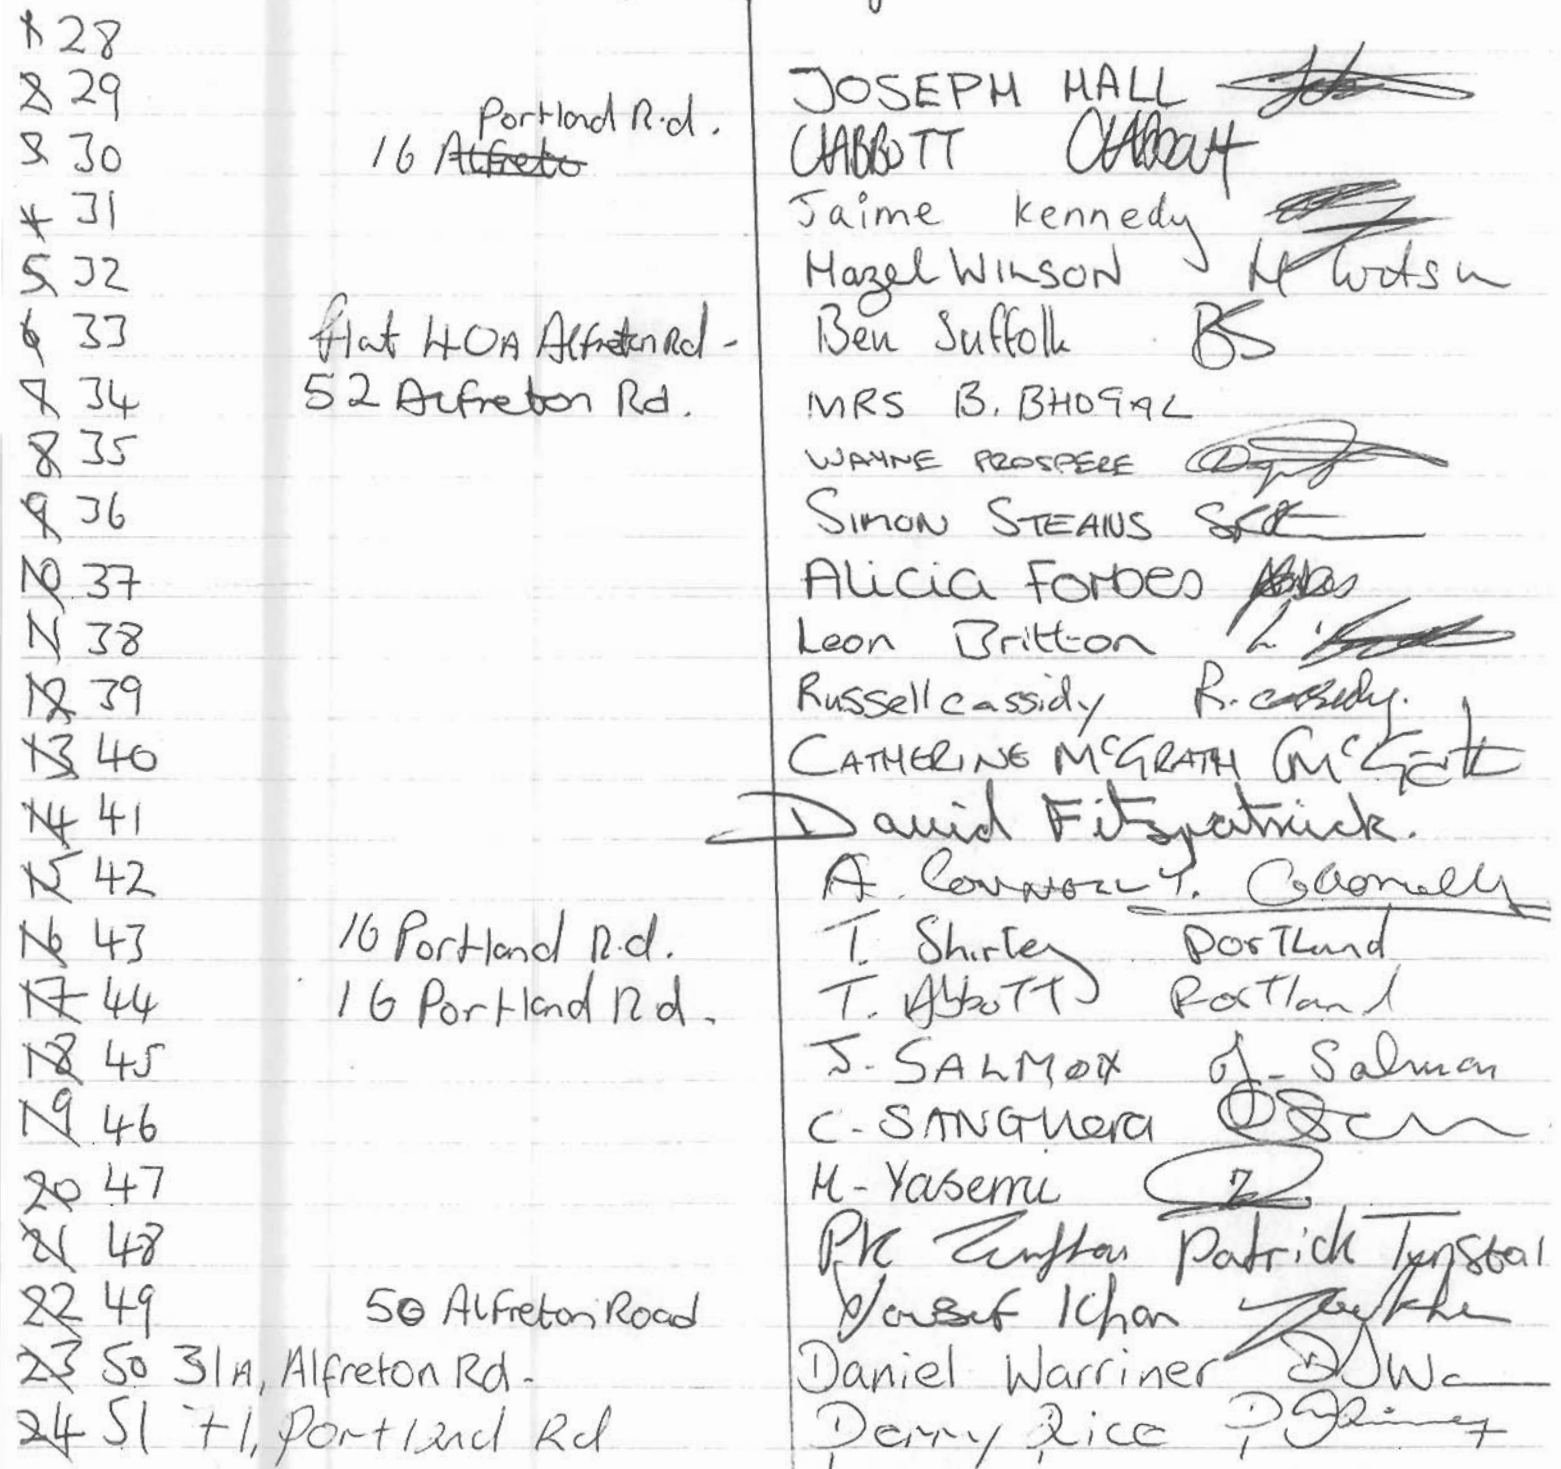 1 28
2 29 JOSEPH HALL
Portland Rd.
3 30 16 Alfreto CHABBOTT CHAbbott
4 31 Jaime Kennedy
5 32 Hazel WILSON H
6 33 flat 40A Alfreton Rd - Ben Suffolk BS
7 34 52 Alfreton Rd. MRS B. BHOGAL
8 35 WAYNE PROSPERE
9 36 SIMON STEANS
10 37 Alicia Forbes
11 38 Leon Britton L.
12 39 Russell cassidy R. cassidy.
13 40 CATHERINE McGRATH CMcGrath
14 41 David Fitzpatrick.
15 42 A. CONNOLLY.
16 43 16 Portland Rd. T. Shirley PorTland
17 44 16 Portland Rd. T. AbboTT PorTland
18 45 J. SALMON J. Salmon
19 46 C. SANGHera
20 47 H. Yasemi
21 48 PK Patrick Tunstal
22 49 50 Alfreton Road Yousef Khan
23 50 31A, Alfreton Rd - Daniel Warriner DJWa
24 51 71, Portland Rd Derry Rice